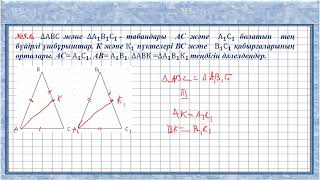 №5.6. ∆ABC және ∆A₁B₁C₁ - табандары AC және A₁C₁ болатын тең
бүйірлі үшбұрыштар. К және К₁ нүктелері ВС және B₁C₁ қабырғаларының
орталары. AC= A₁C₁, AB= A₁B₁. ∆ABK =∆A₁B₁K₁ теңдігін дәлелдеңдер.
B
B₁
K
K₁
A
C
A₁
C₁
∆ABC = ∆A₁B₁C₁
AK = A₁C₁
BK = B₁K₁